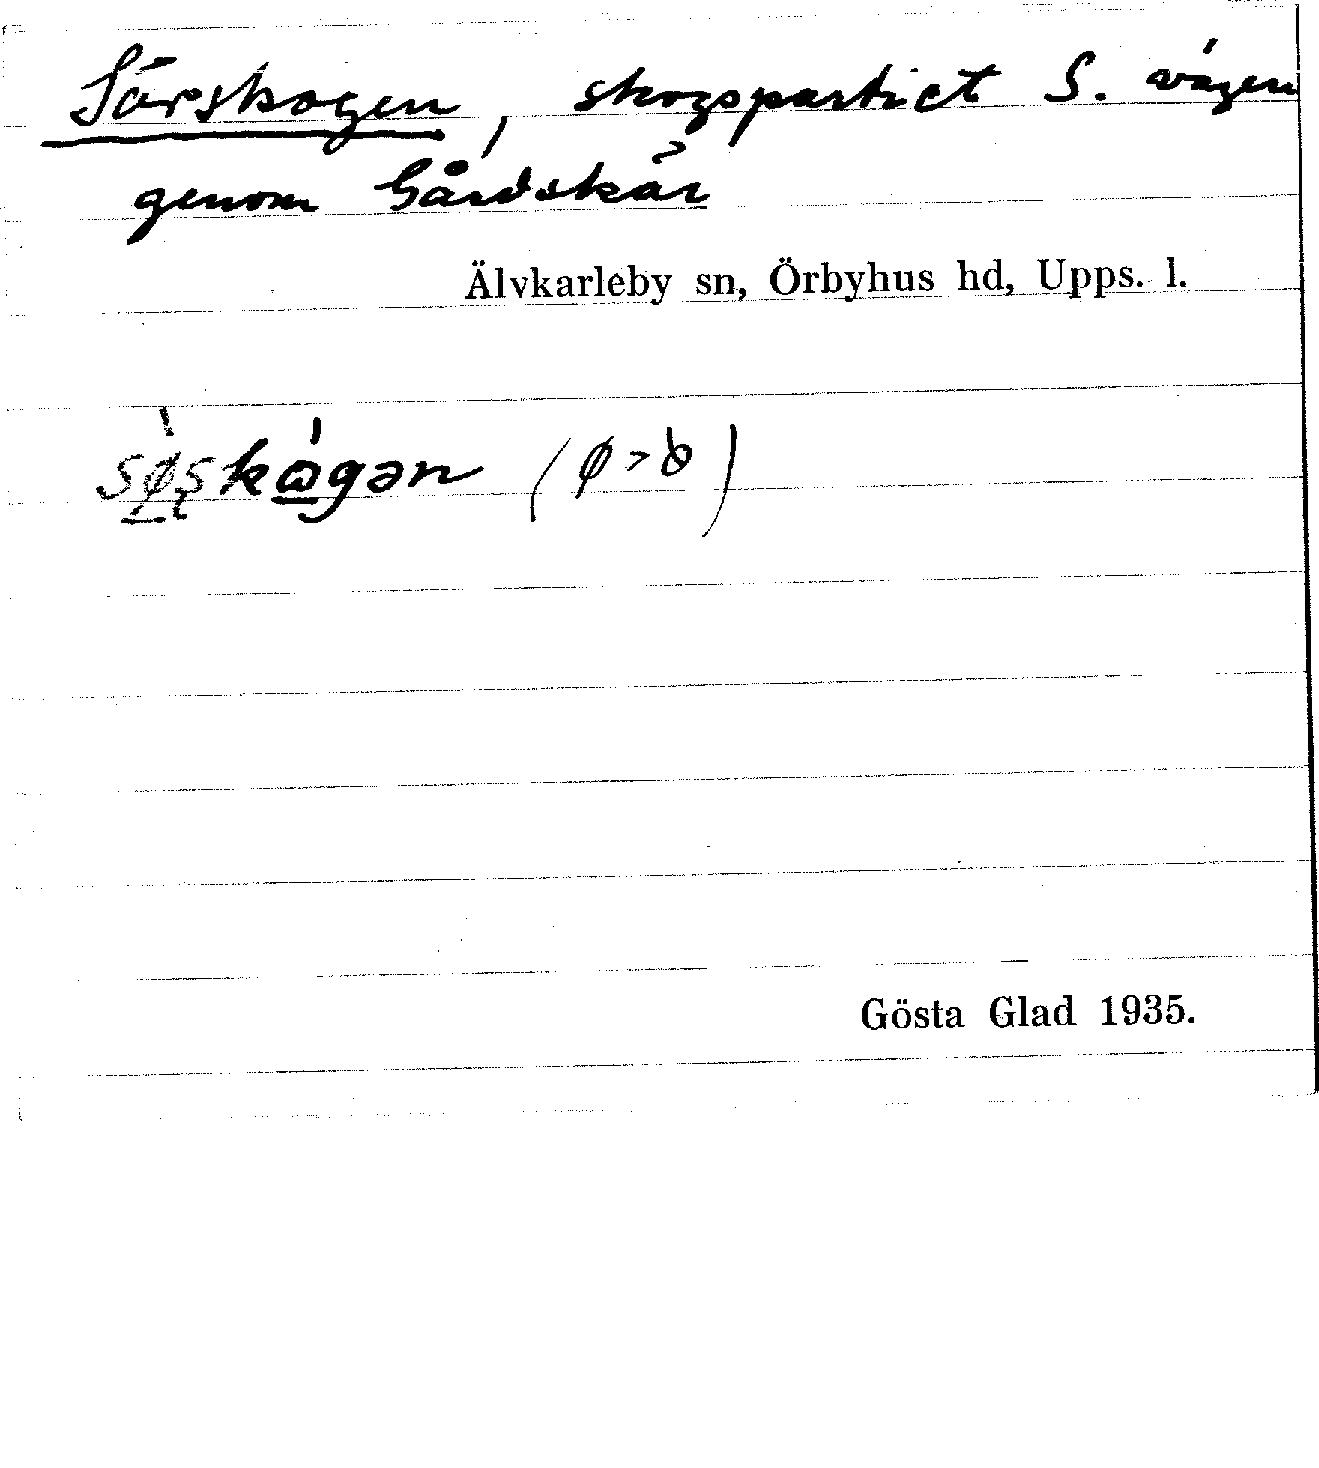 Sörskogen, skogspartiet S. vägen
genom Gårdskär
Älvkarleby sn, Örbyhus hd, Upps. l.
Gösta Glad 1935.